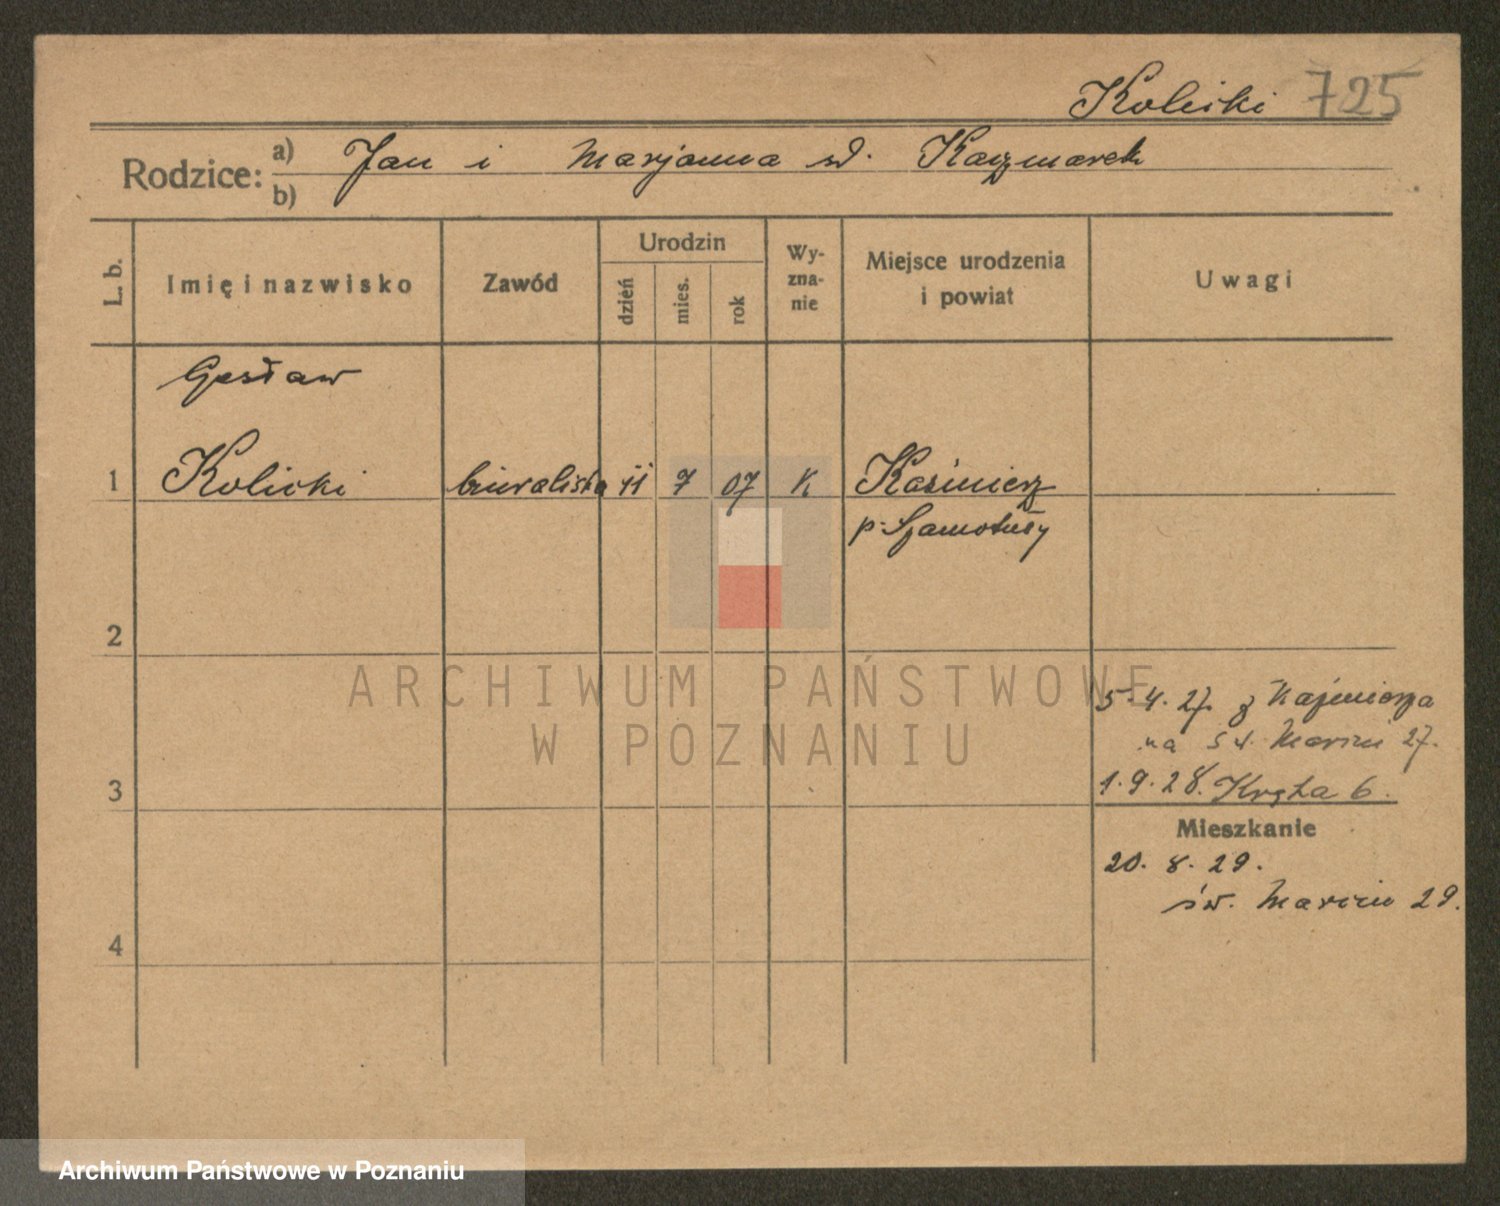 Kolicki 725
Rodzice: a) Jan i Marjanna d. Kaczmarek
b)
L. b.
Imię i nazwisko
Zawód
Urodzin
dzień
mies.
rok
Wy-
zna-
nie
Miejsce urodzenia
i powiat
Uwagi
Czesław
1 Kolicki biuralista 11 7 07 K Kaźmierz
p. Szamotuły
2
ARCHIWUM PAŃSTWOWE
W POZNANIU
5.4.27. z Kaźmierza
na Św. Marcin 27.
3
1.9.28. Kręta 6.
Mieszkanie
20.8.29.
św. Marcin 29.
4
Archiwum Państwowe w Poznaniu